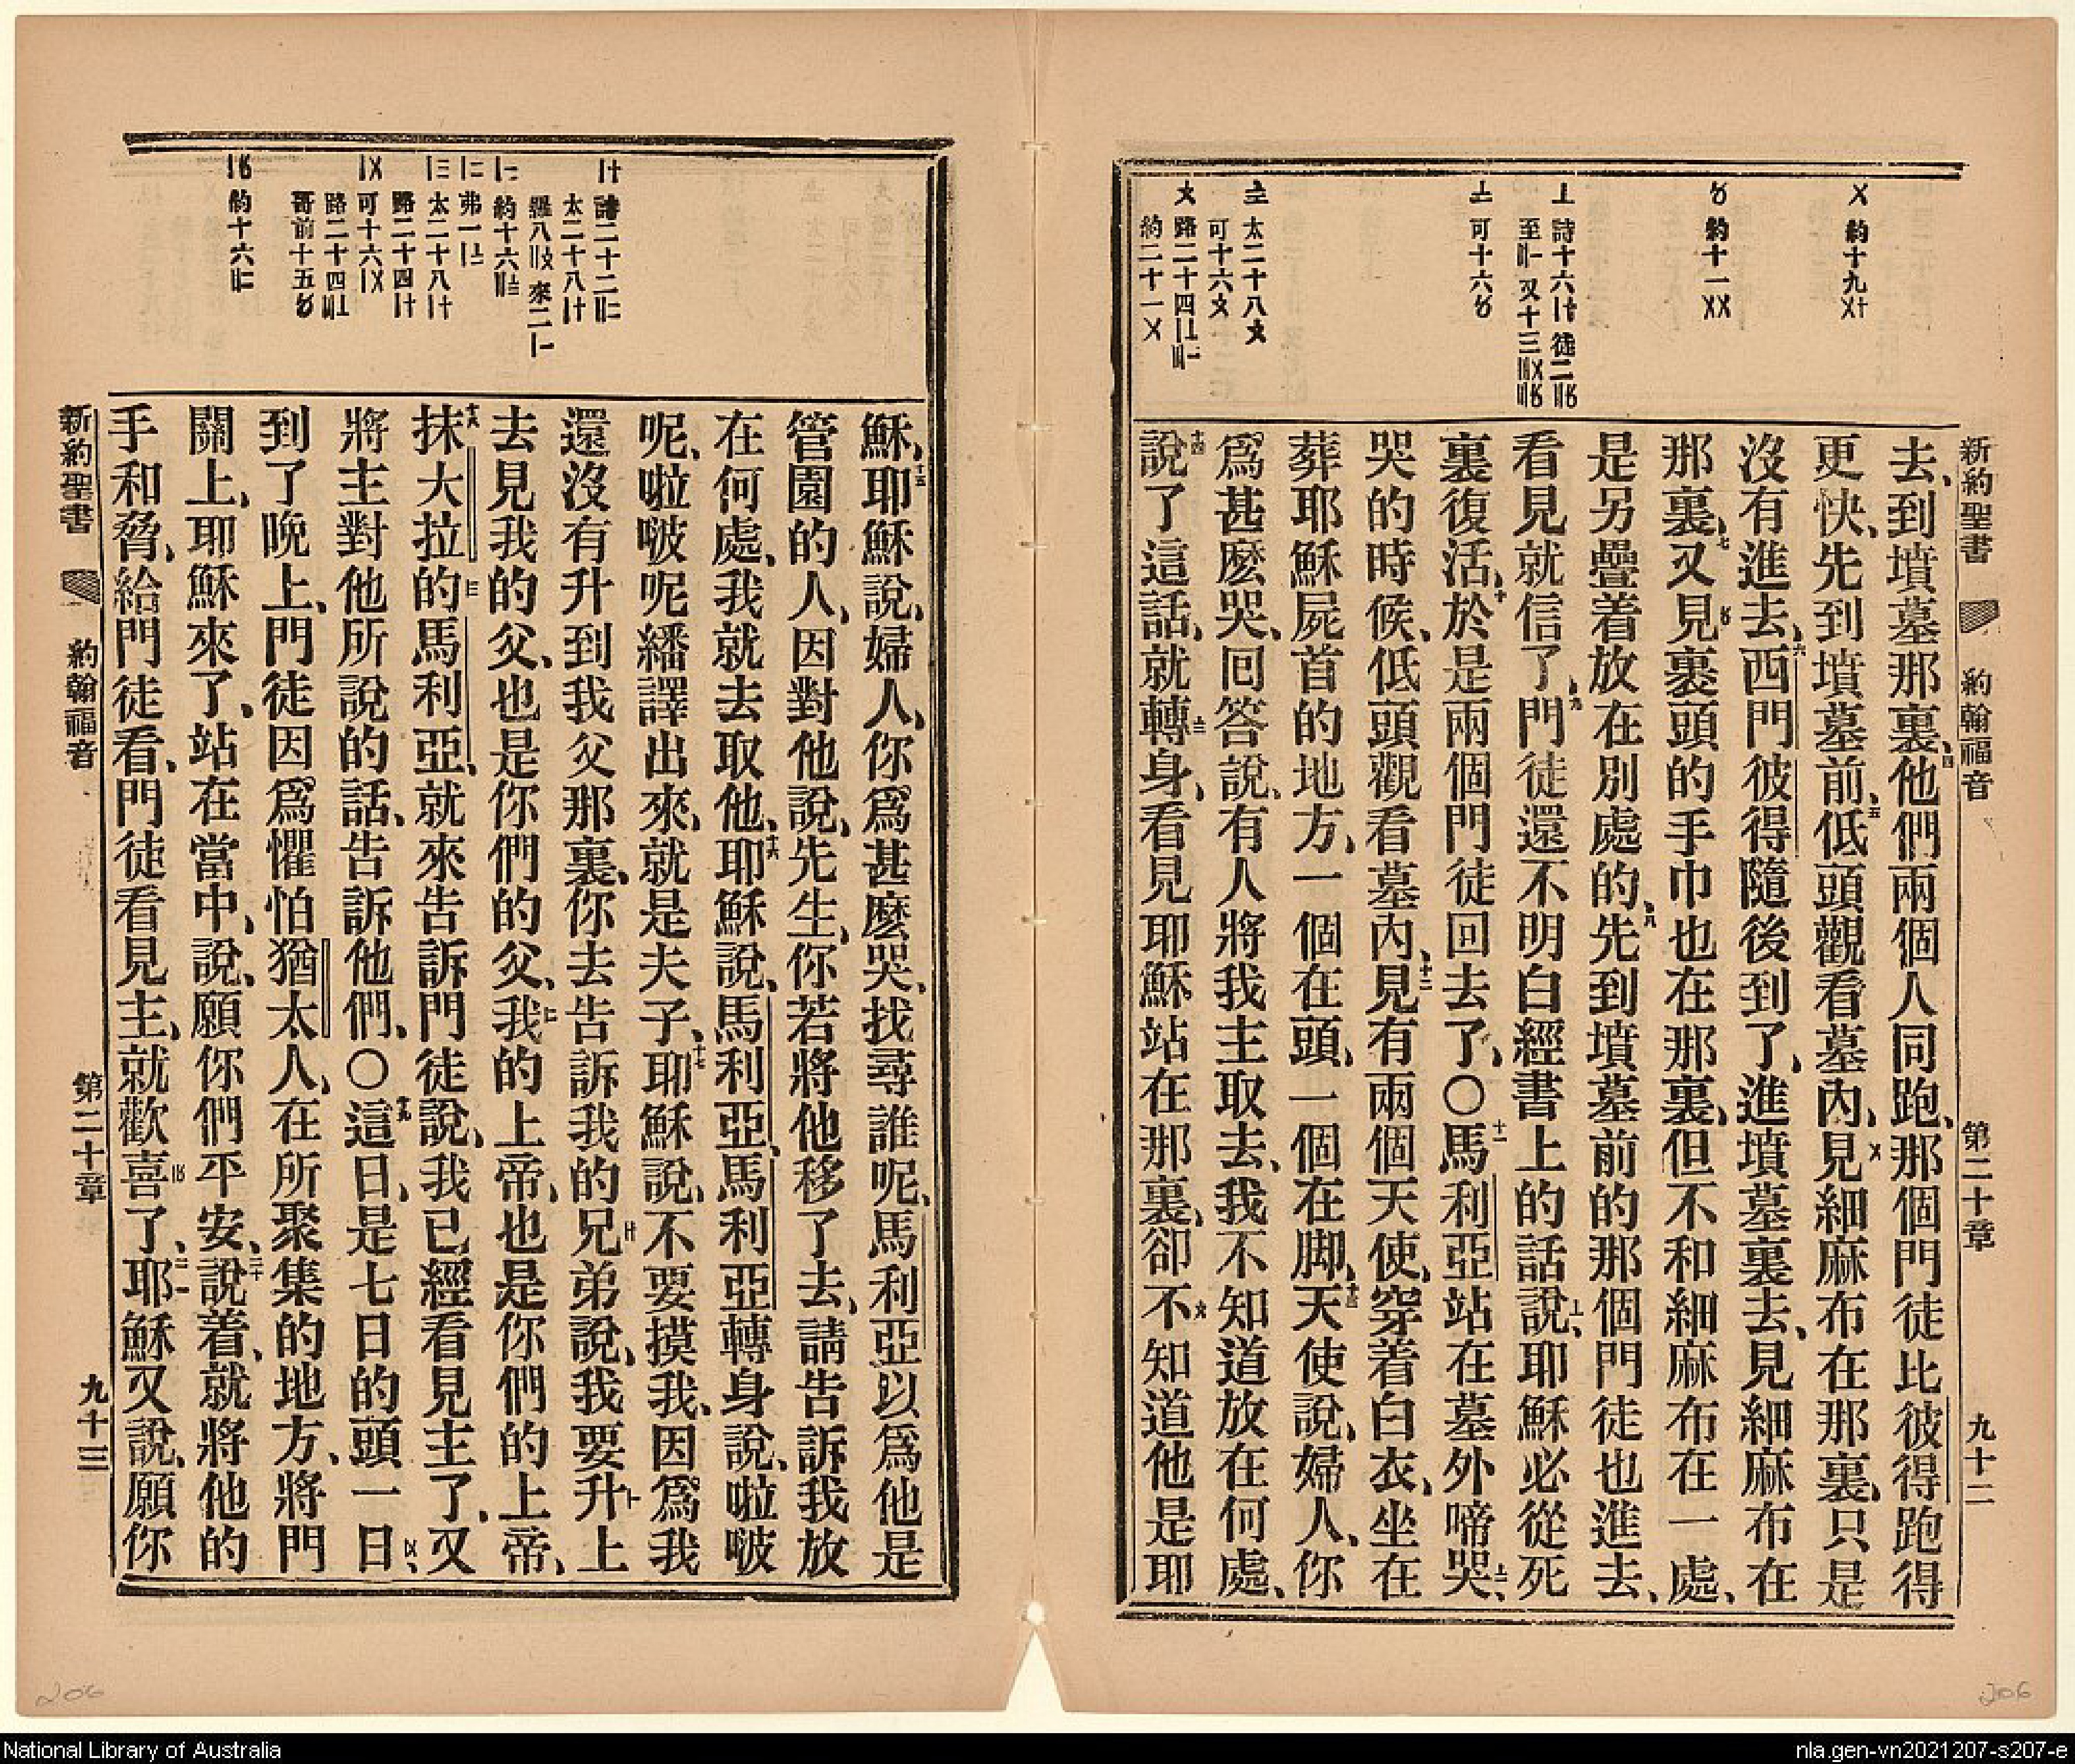 新約聖書 約翰福音 第二十章 九十二
〤 約十九〤十
〥 約十一〤〤
〦 詩十六〡十 徒二〢〥
可十六〥
太二十八〩
可十六〩
約二十一〤
去、到墳墓那裏、四他們兩個人同跑、那個門徒比彼得跑得
更快、先到墳墓前、五低頭觀看墓內、見〤細麻布在那裏、只是
沒有進去、六西門彼得隨後到了、進墳墓裏去、見細麻布在
那裏、七又見〥裹頭的手巾也在那裏、但不和細麻布在一處、
是另疊着放在別處的、八先到墳墓前的那個門徒也進去、
看見就信了、九門徒還不明白經書上的話說、〦耶穌必從死
裏復活、十於是兩個門徒回去了、〇十一馬利亞站在墓外啼哭、〧
哭的時候、低頭觀看墓內、十二見有兩個天使、穿着白衣、坐在
葬耶穌屍首的地方、一個在頭、一個在脚、十三天使說、婦人、你
爲甚麽哭、回答說、有人將我主取去、我不知道放在何處、
十四說了這話、就轉〨身、看見耶穌站在那裏、卻不〩知道他是耶
〡十 詩二十二〢二
太二十八〡十
羅八〢〩 來二〡一
〡二 弗一〡〧
〡三 太二十八〡十
路二十四〡十
〡〤 可十六〡〤
哥前十五〥
〡〥 約十六〢二
穌、十五耶穌說、婦人、你爲甚麽哭、找尋誰呢、馬利亞以爲他是
管園的人、因對他說、先生、你若將他移了去、請告訴我放
在何處、我就去取他、十六耶穌說、馬利亞、馬利亞轉身說、啦啵
呢、啦啵呢繙譯出來、就是夫子、十七耶穌說、不要摸我、因爲我
還沒有升到我父那裏、你去告訴我的兄〡十弟說、我要升上
去見我的父、也是你們的父、我〡二的上帝、也是你們的上帝、
十八抹大拉的〡三馬利亞、就來告訴門徒說、我已經看見主了、又
將主對他所說的話、告訴他們、〇十九這日、是七日的頭一日、〡〤
到了晚上、門徒因爲懼怕猶太人、在所聚集的地方、將門
關上、耶穌來了、站在當中、說、願你們平安、二十說着、就將他的
手和脅、給門徒看、門徒看見主、就歡喜〡〥了、二一耶穌又說、願你
新約聖書 約翰福音 第二十章 九十三
206
206
National Library of Australia
nla.gen-vn2021207-s207-e